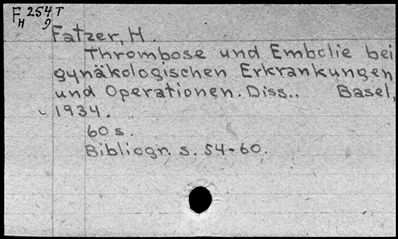 F 254 T
H 9
Fatzer, H.
Thrombose und Embolie bei
gynäkologischen Erkrankungen
und Operationen. Diss.. Basel,
1934.
60 s.
Bibliogr. s. 54-60.